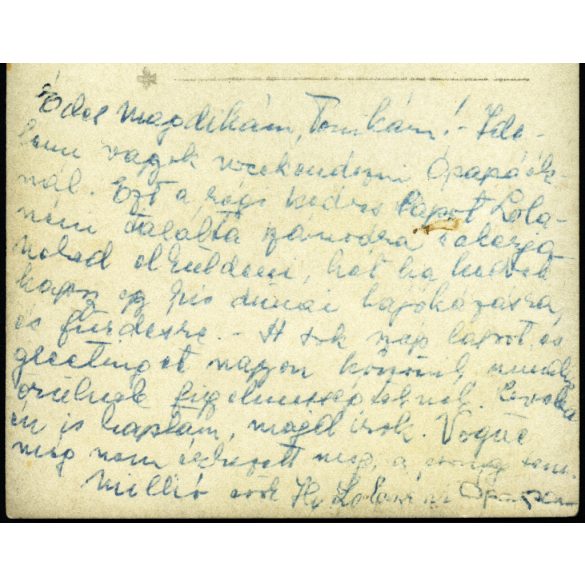 Édes Magdikám, Tomikám! - Ide-
lenn vagyok weekendezni Ópapáék-
nál. Ezt a régi kedves lapot Lola-
néni találta számodra s akarja
neked elküldeni, hát ha kedvet
kapsz egy kis dunai hajókázásra,
és fürdésre. - A sok szép lapot és
greetinget nagyon köszönik, mindig
örülnek figyelmességteknek. Levelet
én is kaptam, majd írok. Vogue
még nem érkezett meg, a sem.
Millió csók Lola